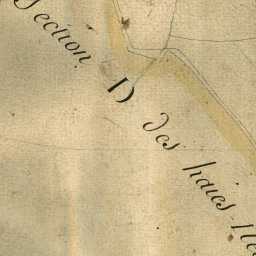 Section D des haies